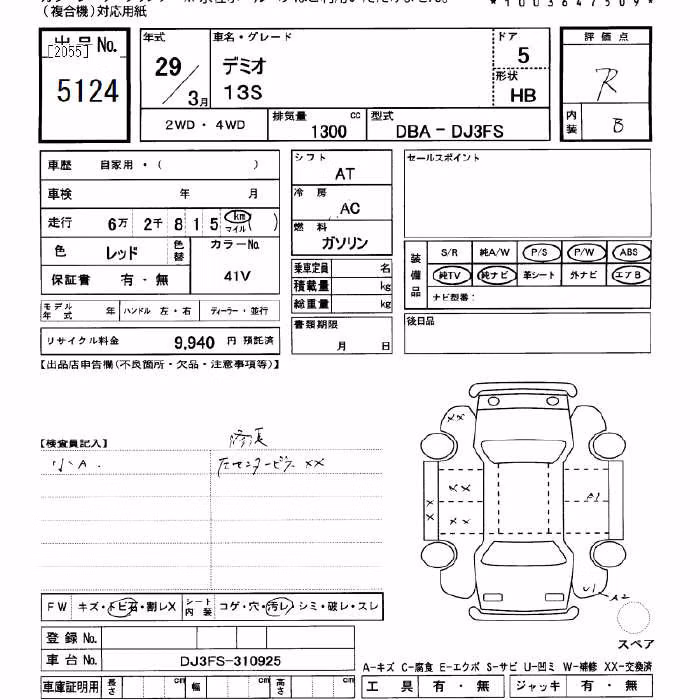 (複合機)対応用紙
*1003647509*
出品No.
[2055]
5124
年式
29/3月
車名・グレード
デミオ
13S
ドア
5
形状
HB
評価点
R
内装
B
2WD・4WD
排気量 1300 cc
型式 DBA-DJ3FS
車歴 自家用・( )
車検 年 月
走行 6万 2千 8 1 5 km マイル ( )
色 レッド 色替
カラーNo.
41V
保証書 有・無
モデル年式 年 ハンドル 左・右 ディーラー・並行
リサイクル料金 9,940 円 預託済
シフト
AT
冷房
AC
燃料
ガソリン
乗車定員 名
積載量 kg
総重量 kg
書類期限
月 日
セールスポイント
装備品
S/R 純A/W P/S P/W ABS
純TV 純ナビ 革シート 外ナビ エアB
ナビ型番:
後日品
【出品店申告欄(不良箇所・欠品・注意事項等)】
【検査員記入】
修復
小A.
左センターピラー XX
XX
XX
XX
X
X
A1
U1
A2
スペア
FW キズ・トビ石・割レX
シート内装 コゲ・穴・汚レ・シミ・破レ・スレ
登録No.
車台No. DJ3FS-310925
車庫証明用 長さ cm 幅 cm 高さ cm
A-キズ C-腐食 E-エクボ S-サビ U-凹ミ W-補修 XX-交換済
工具 有・無 ジャッキ 有・無